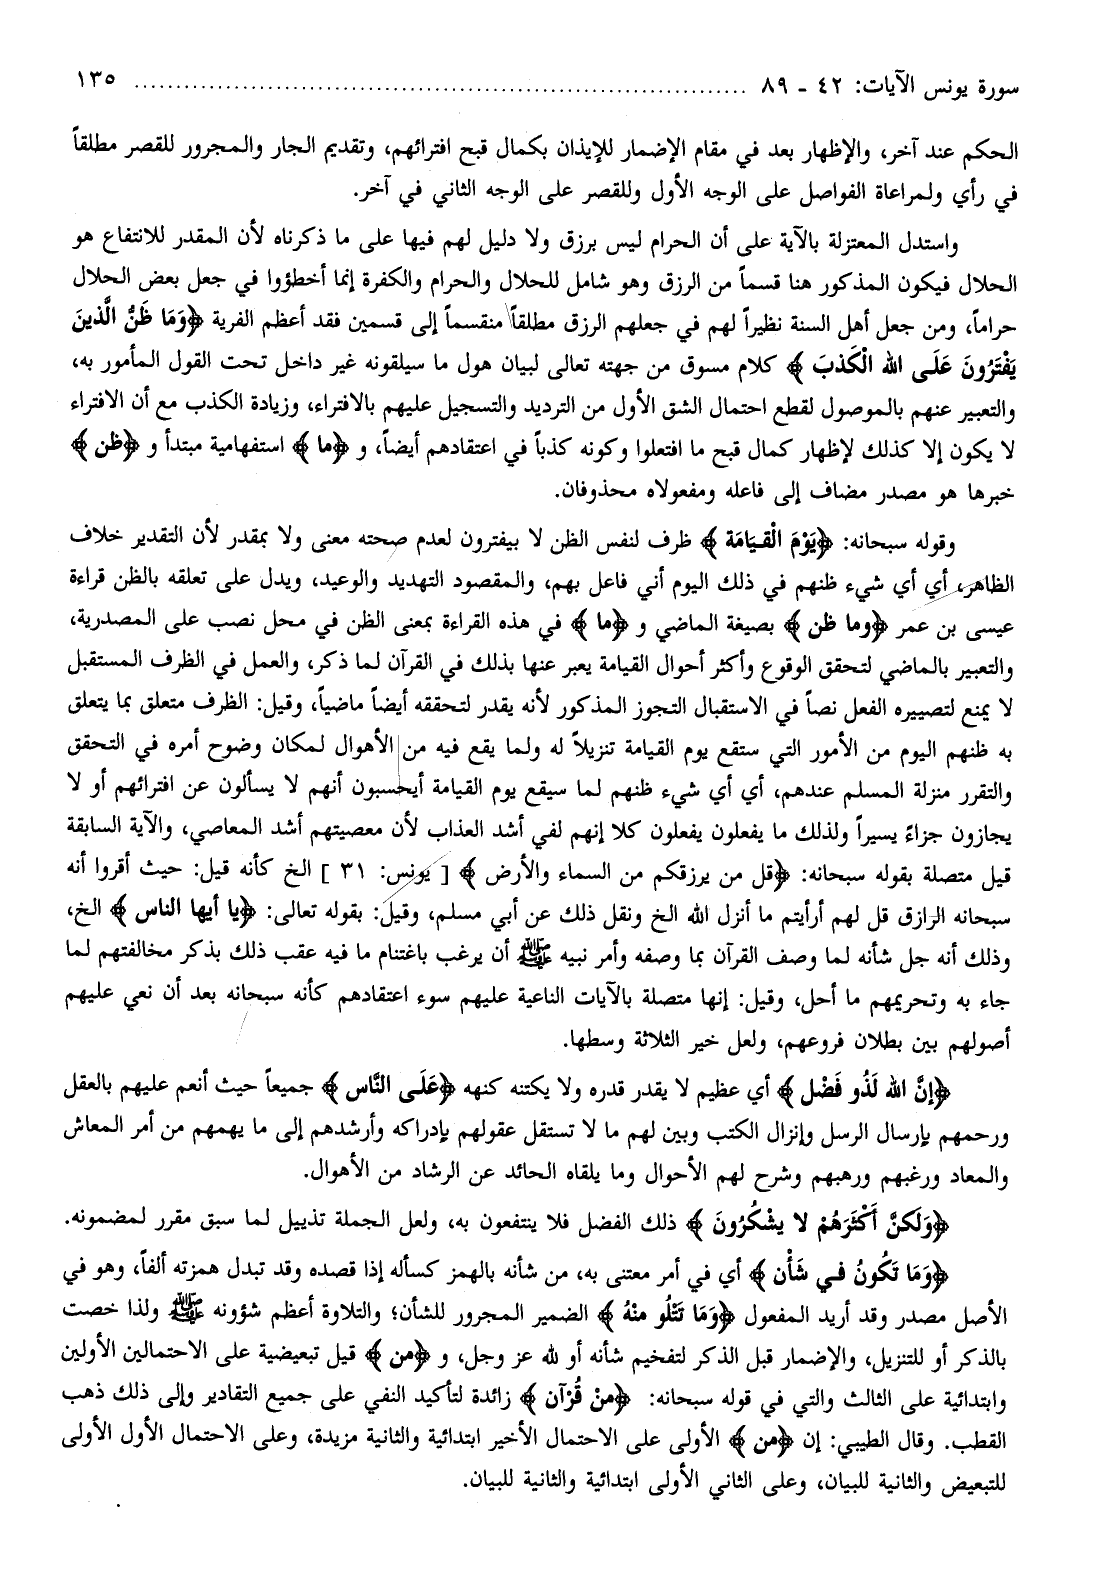 سورة يونس الآيات: ٤٢ - ٨٩ ........................................................................ ١٣٥
الحكم عند آخر، والإظهار بعد في مقام الإضمار للإيذان بكمال قبح افترائهم، وتقديم الجار والمجرور للقصر مطلقاً
في رأي ولمراعاة الفواصل على الوجه الأول وللقصر على الوجه الثاني في آخر.
واستدل المعتزلة بالآية على أن الحرام ليس برزق ولا دليل لهم فيها على ما ذكرناه لأن المقدر للانتفاع هو
الحلال فيكون المذكور هنا قسماً من الرزق وهو شامل للحلال والحرام والكفرة إنما أخطؤوا في جعل بعض الحلال
حراماً، ومن جعل أهل السنة نظيراً لهم في جعلهم الرزق مطلقاً منقسماً إلى قسمين فقد أعظم الفرية ﴿وَمَا ظَنُّ الَّذينَ
يَفْتَرُونَ عَلَى الله الْكَذبَ﴾ كلام مسوق من جهته تعالى لبيان هول ما سيلقونه غير داخل تحت القول المأمور به،
والتعبير عنهم بالموصول لقطع احتمال الشق الأول من الترديد والتسجيل عليهم بالافتراء، وزيادة الكذب مع أن الافتراء
لا يكون إلا كذلك لإظهار كمال قبح ما افتعلوا وكونه كذباً في اعتقادهم أيضاً، و ﴿ما﴾ استفهامية مبتدأ و ﴿ظن﴾
خبرها هو مصدر مضاف إلى فاعله ومفعولاه محذوفان.
وقوله سبحانه: ﴿يَوْمَ الْقيَامَة﴾ ظرف لنفس الظن لا بيفترون لعدم صحته معنى ولا بمقدر لأن التقدير خلاف
الظاهر، أي أي شيء ظنهم في ذلك اليوم أني فاعل بهم، والمقصود التهديد والوعيد، ويدل على تعلقه بالظن قراءة
عيسى بن عمر ﴿وما ظن﴾ بصيغة الماضي و ﴿ما﴾ في هذه القراءة بمعنى الظن في محل نصب على المصدرية،
والتعبير بالماضي لتحقق الوقوع وأكثر أحوال القيامة يعبر عنها بذلك في القرآن لما ذكر، والعمل في الظرف المستقبل
لا يمنع لتصييره الفعل نصاً في الاستقبال التجوز المذكور لأنه يقدر لتحققه أيضاً ماضياً، وقيل: الظرف متعلق بما يتعلق
به ظنهم اليوم من الأمور التي ستقع يوم القيامة تنزيلاً له ولما يقع فيه من الأهوال لمكان وضوح أمره في التحقق
والتقرر منزلة المسلم عندهم، أي أي شيء ظنهم لما سيقع يوم القيامة أيحسبون أنهم لا يسألون عن افترائهم أو لا
يجازون جزاءً يسيراً ولذلك ما يفعلون يفعلون كلا إنهم لفي أشد العذاب لأن معصيتهم أشد المعاصي، والآية السابقة
قيل متصلة بقوله سبحانه: ﴿قل من يرزقكم من السماء والأرض﴾ [ يونس: ٣١ ] الخ كأنه قيل: حيث أقروا أنه
سبحانه الرازق قل لهم أرأيتم ما أنزل الله الخ ونقل ذلك عن أبي مسلم، وقيل: بقوله تعالى: ﴿يا أيها الناس﴾ الخ،
وذلك أنه جل شأنه لما وصف القرآن بما وصفه وأمر نبيه ﷺ أن يرغب باغتنام ما فيه عقب ذلك بذكر مخالفتهم لما
جاء به وتحريمهم ما أحل، وقيل: إنها متصلة بالآيات الناعية عليهم سوء اعتقادهم كأنه سبحانه بعد أن نعي عليهم
أصولهم بين بطلان فروعهم، ولعل خير الثلاثة وسطها.
﴿إنَّ الله لَذُو فَضْل﴾ أي عظيم لا يقدر قدره ولا يكتنه كنهه ﴿عَلَى النَّاس﴾ جميعاً حيث أنعم عليهم بالعقل
ورحمهم بإرسال الرسل وإنزال الكتب وبين لهم ما لا تستقل عقولهم بإدراكه وأرشدهم إلى ما يهمهم من أمر المعاش
والمعاد ورغبهم ورهبهم وشرح لهم الأحوال وما يلقاه الحائد عن الرشاد من الأهوال.
﴿وَلَكنَّ أَكْثَرَهُمْ لا يشْكُرُونَ﴾ ذلك الفضل فلا ينتفعون به، ولعل الجملة تذييل لما سبق مقرر لمضمونه.
﴿وَمَا تَكُونُ في شَأْن﴾ أي في أمر معتنى به، من شأنه بالهمز كسأله إذا قصده وقد تبدل همزته ألفاً، وهو في
الأصل مصدر وقد أريد المفعول ﴿وَمَا تَتْلُو منْهُ﴾ الضمير المجرور للشأن؛ والتلاوة أعظم شؤونه ﷺ ولذا خصت
بالذكر أو للتنزيل، والإضمار قبل الذكر لتفخيم شأنه أو لله عز وجل، و ﴿من﴾ قيل تبعيضية على الاحتمالين الأولين
وابتدائية على الثالث والتي في قوله سبحانه: ﴿منْ قُرْآن﴾ زائدة لتأكيد النفي على جميع التقادير وإلى ذلك ذهب
القطب. وقال الطيبي: إن ﴿من﴾ الأولى على الاحتمال الأخير ابتدائية والثانية مزيدة، وعلى الاحتمال الأول الأولى
للتبعيض والثانية للبيان، وعلى الثاني الأولى ابتدائية والثانية للبيان.